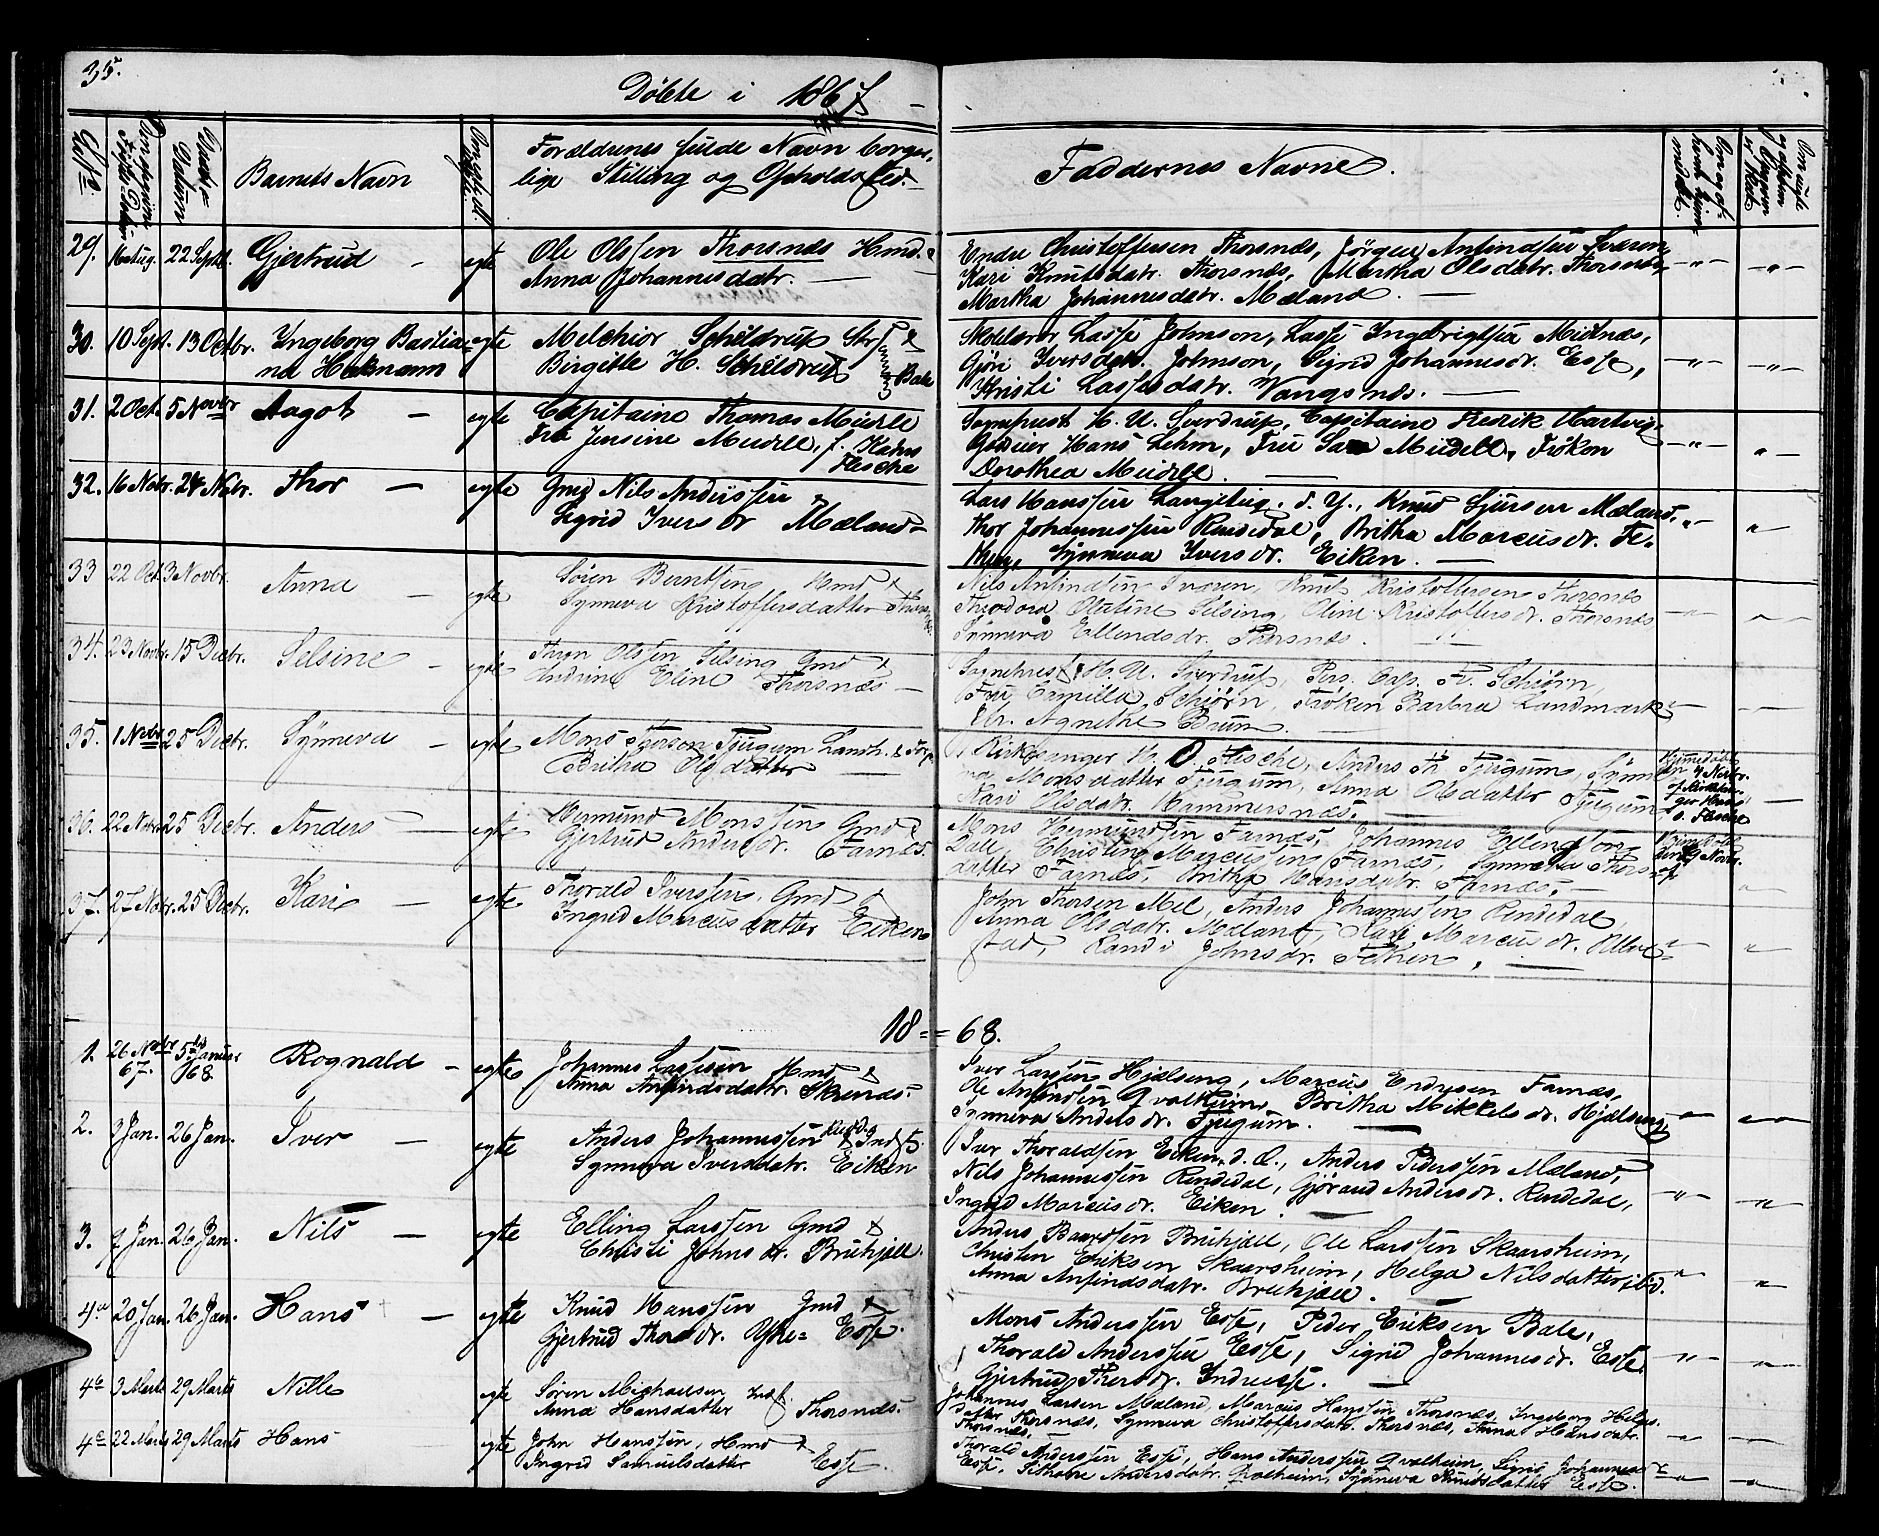 35.
Døbte i 1867
Barnets Navn
Forældrenes fulde Navn borger-
lige Stilling og Opholdssted.
Faddernes Navne.
29. 22 Septb. Gjertrud - egte Ole Olssen Thorsnæs Hmd. &
Anna Johannesdatr. —
Endre Christoffersen Thorsnæs, Jørgen Anfindsen Sværen,
Kari Knutsdatr. Thorsnæs, Martha Olsdatr. Thorsnæs,
Martha Johannesdatr. Mæland. —
30. 10 Sept. 13 Octbr. Ingeborg Bastia- egte Melchior Schildrup
na Birgitte H. Schildrup Bale
Lasse Johnson, Lasse Ingebrigtsen Midnæs,
Gjøri Iversdatr. Johnson, Sigrid Johannesdr. Esse,
Kristi Lassesdatr. Vangsnæs. —
31. 2 Oct. 5 Novbr Aagot — egte Capitaine Thomas Meidell
Fru Jensine Meidell, f. Hahns
Flesche
Sognepræst H. U. Sverdrup, Capitaine Fredrik Hartvig,
Hans Lehm, Fru Sara Meidell, Frøken
Dorothea Meidell. —
32. 16 Novbr. 24 Novbr. Thor — egte Gmd Nils Anderssen &
Sigrid Iversdr Mæland
Lars Hanssen Langeteig. d. Y., Knud Sjursen Mæland,
Thor Johannessen Rendedal, Britha Marcusdr. Fe-
Synneva Iversdr. Eiken. —
33 22 Oct. 3 Novbr. Anna — egte Søren Berntsen, Hmd &
Synneva Kristoffersdatter Thorsnæs
Nils Anfindsen Sværen, Knut Kristoffersen Thorsnæs
Theodora Olatine Selsing, Oline Kristoffersdr. Thorsnæs
Synneva Ellendsdr. Thorsnæs.
34. 23 Novbr. 15 Decbr. Selsine — egte Thron Olssen Selsing Gmd &
Andrine Eline Thorsnæs —
Sognepræst H. U. Sverdrup, Pers. Cap. Fr. Schiørn,
Fru Camilla Schiørn, Frøken Barbra Landmark
Elr. Agnethe Brun. —
35. 1 Novbr 25 Decbr. Synneva — egte Mons Tjugum
Britha Olsdatter —
Kirkesanger H. O. Flesche, Anders Th. Tjugum, Synne-
va Monsdatter Tjugum, Anna Olsdatter Tjugum
Kari Olsdatr. Hammersnæs. —
36. 22 Novbr 25 Decbr. Anders — egte Hermund Monssen Gmd &
Gjertrud Andersdr. Farnæs.
Mons Hermundssen Farnæs, Johannes Ellingssen
Bale, Christen Marcussen Farnæs, Synneva Thors-
datter Farnæs, Britha Hansdatr. Farnæs. —
37. 27 Novbr. 25 Decbr. Kari — egte Thorald Iverssen, Gmd &
Ingrid Marcusdatter Eiken
John Thorsen Mel, Anders Johannessen Rendedal
Anna Olsdatr. Mæland, Kari Marcusdr. Ulve-
stad, Randi Johnsdr. Fethen, —
18 = 68.
1. 26 Novbr 67. 5 Januar 68 Rognald — egte Johannes Larssen Hmd &
Anna Anfindsdatr. Skrenæs.
Iver Larssen Hjelseng, Marcus Endresen Farnæs,
Ole Anfindsen Qvalheim, Britha Mikkelsdr. Hjelseng,
Synneva Andersdr. Tjugum. —
2. 3 Jan. 26 Jan. Iver — egte Anders Johannessen
Synneva Iversdatr. Eiken
Iver Thoraldsen Eiken, d. Æ., Anders Pederssen Mæland,
Nils Johannessen Rendedal, Gjørand Andersdr. Rendedal,
Ingrid Marcusdr. Eiken. —
3. 7 Jan. 26 Jan. Nils — egte Elling Larssen Gmd &
Christi Johnsdr. Bruhjell.
Anders Baardsen Bruhjell, Ole Larssen Skaarsheim,
Christen Eriksen Skaarsheim, Helga Nilsdatter ibd.
Anna Anfindsdatr. Bruhjell.
4a 20 Jan. 26 Jan. Hans — egte Knud Hanssen Gmd &
Gjertrud Thorsdr. Ytre= Esse.
Mons Anderssen Esse, Peder Eriksen Bale,
Thorald Anderssen Esse, Sigrid Johannesdr. Esse
Gjertrud Thorsdr. Indreesse. —
4b 3 Marts 29 Marts Nille egte Søren Michaelsen
Anna Hansdatter Thorsnæs.
Johannes Larsen Mæland, Marcus Hanssen Thorsnæs, Ingeborg Helges-
datter Thorsnæs, Synneva Christoffersdatr. Thorsnæs, Anna Hansdatr.
Thorsnæs.
4c 22 Marts 29 Marts Hans egte John Hanssen, Hmd &
Ingrid Samuelsdatter Esse.
Thorald Anderssen Esse, Hans Anderssen Qvalheim, Sigrid Johannesdr
Esse, Andersdatr. Qvalheim, Synneva Knudsdatter Esse.